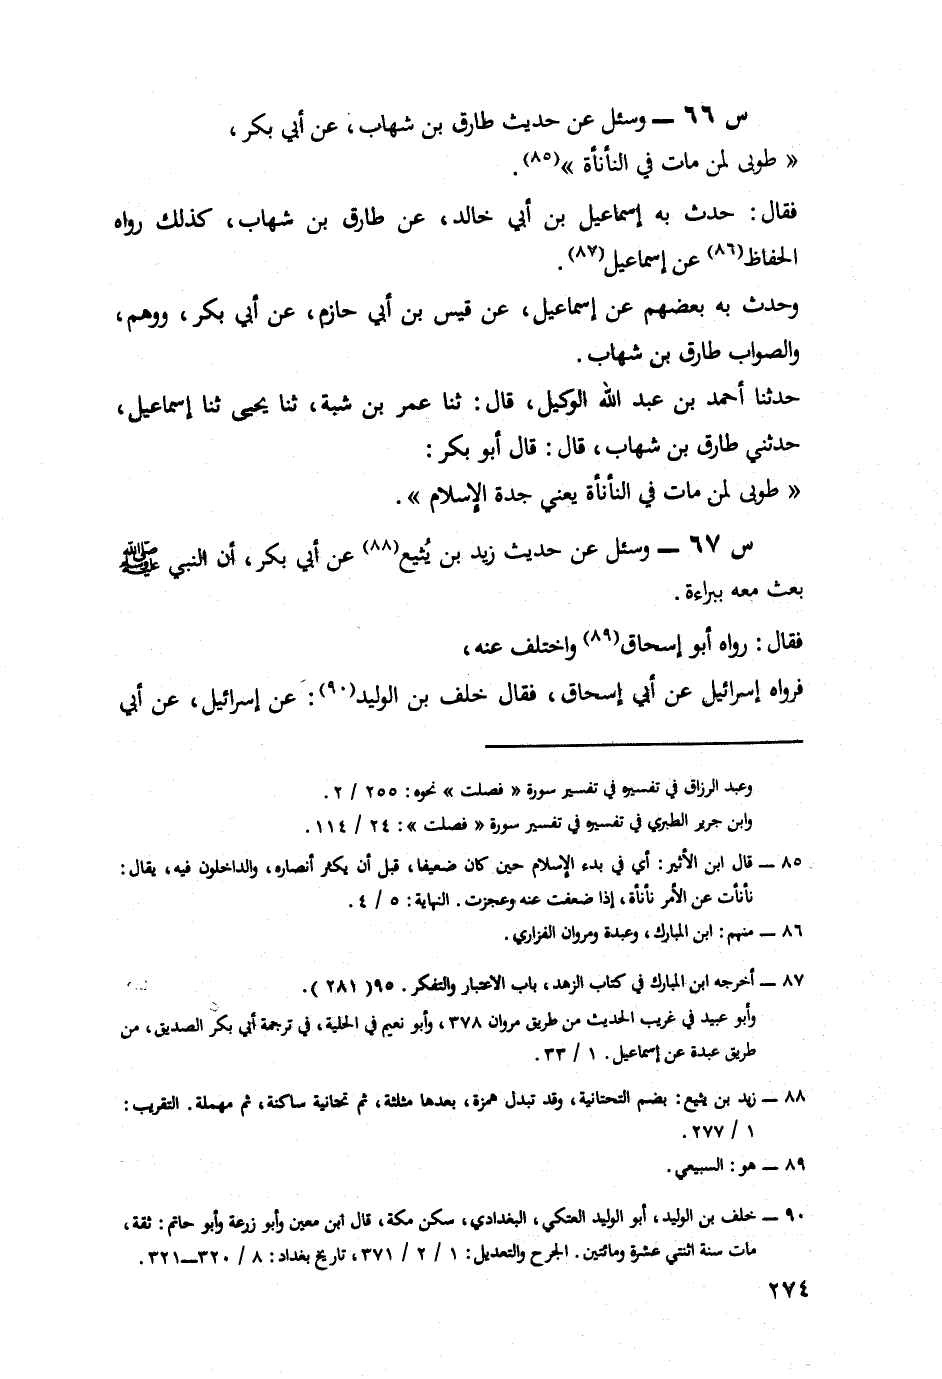 س ٦٦ ــ وسئل عن حديث طارق بن شهاب، عن أبي بكر،
« طوبى لمن مات في النأنأة »(٨٥).
فقال: حدث به إسماعيل بن أبي خالد، عن طارق بن شهاب، كذلك رواه
الحفاظ(٨٦) عن إسماعيل(٨٧).
وحدث به بعضهم عن إسماعيل، عن قيس بن أبي حازم، عن أبي بكر، ووهم،
والصواب طارق بن شهاب.
حدثنا أحمد بن عبد الله الوكيل، قال: ثنا عمر بن شبة، ثنا يحيى ثنا إسماعيل،
حدثني طارق بن شهاب، قال: قال أبو بكر:
« طوبى لمن مات في النأنأة يعني جدة الإسلام ».
س ٦٧ ــ وسئل عن حديث زيد بن يُثيع(٨٨) عن أبي بكر، أن النبي ﷺ
بعث معه ببراءة.
فقال: رواه أبو إسحاق(٨٩) واختلف عنه،
فرواه إسرائيل عن أبي إسحاق، فقال خلف بن الوليد(٩٠): عن إسرائيل، عن أبي
وعبد الرزاق في تفسيره في تفسير سورة « فصلت » نحوه: ٢٥٥ / ٢.
وابن جرير الطبري في تفسيره في تفسير سورة « فصلت »: ٢٤ / ١١٤.
٨٥ ــ قال ابن الأثير: أي في بدء الإسلام حين كان ضعيفا، قبل أن يكثر أنصاره، والداخلون فيه، يقال:
نأنأت عن الأمر نأنأة، إذا ضعفت عنه وعجزت. النهاية: ٥ / ٤.
٨٦ ــ منهم: ابن المبارك، وعبدة ومروان الفزاري.
٨٧ ــ أخرجه ابن المبارك في كتاب الزهد، باب الاعتبار والتفكر. ٩٥( ٢٨١ ).
وأبو عبيد في غريب الحديث من طريق مروان ٣٧٨، وأبو نعيم في الحلية، في ترجمة أبي بكر الصديق، من
طريق عبدة عن إسماعيل. ١ / ٣٣.
٨٨ ــ زيد بن يثيع: بضم التحتانية، وقد تبدل همزة، بعدها مثلثة، ثم تحتانية ساكنة، ثم مهملة. التقريب:
١ / ٢٧٧.
٨٩ ــ هو: السبيعي.
٩٠ ــ خلف بن الوليد، أبو الوليد العتكي، البغدادي، سكن مكة، قال ابن معين وأبو زرعة وأبو حاتم: ثقة،
مات سنة اثنتي عشرة ومائتين. الجرح والتعديل: ١ / ٢ / ٣٧١، تاريخ بغداد: ٨ / ٣٢٠ــ٣٢١.
٢٧٤